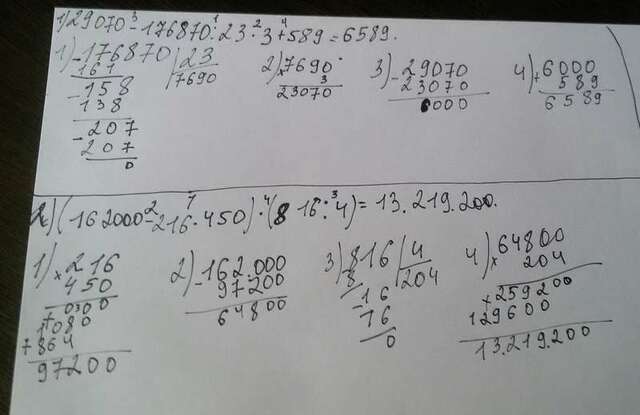 1) 29070 - 176870 : 23 · 3 + 589 = 6589.
1) - 176870 | 23
161 7690
- 158
138
- 207
207
0
2) × 7690
3
23070
3) - 29070
23070
6000
4) + 6000
589
6589
2) (162000 - 216 · 450) · (816 : 4) = 13.219.200.
1) × 216
450
+ 000
1080
+ 864
97200
2) - 162.000
97200
64800
3) 816 | 4
8 204
- 16
16
0
4) × 64800
204
+ 259200
129600
13.219.200